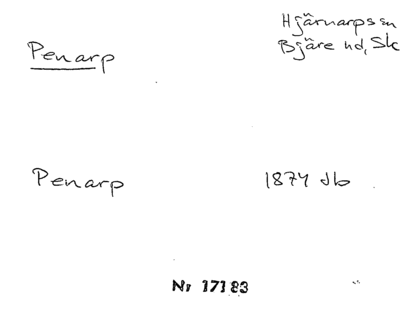 Penarp
Hjärnarps sn
Bjäre hd, Sk
Penarp 1874 db
Nr 17183